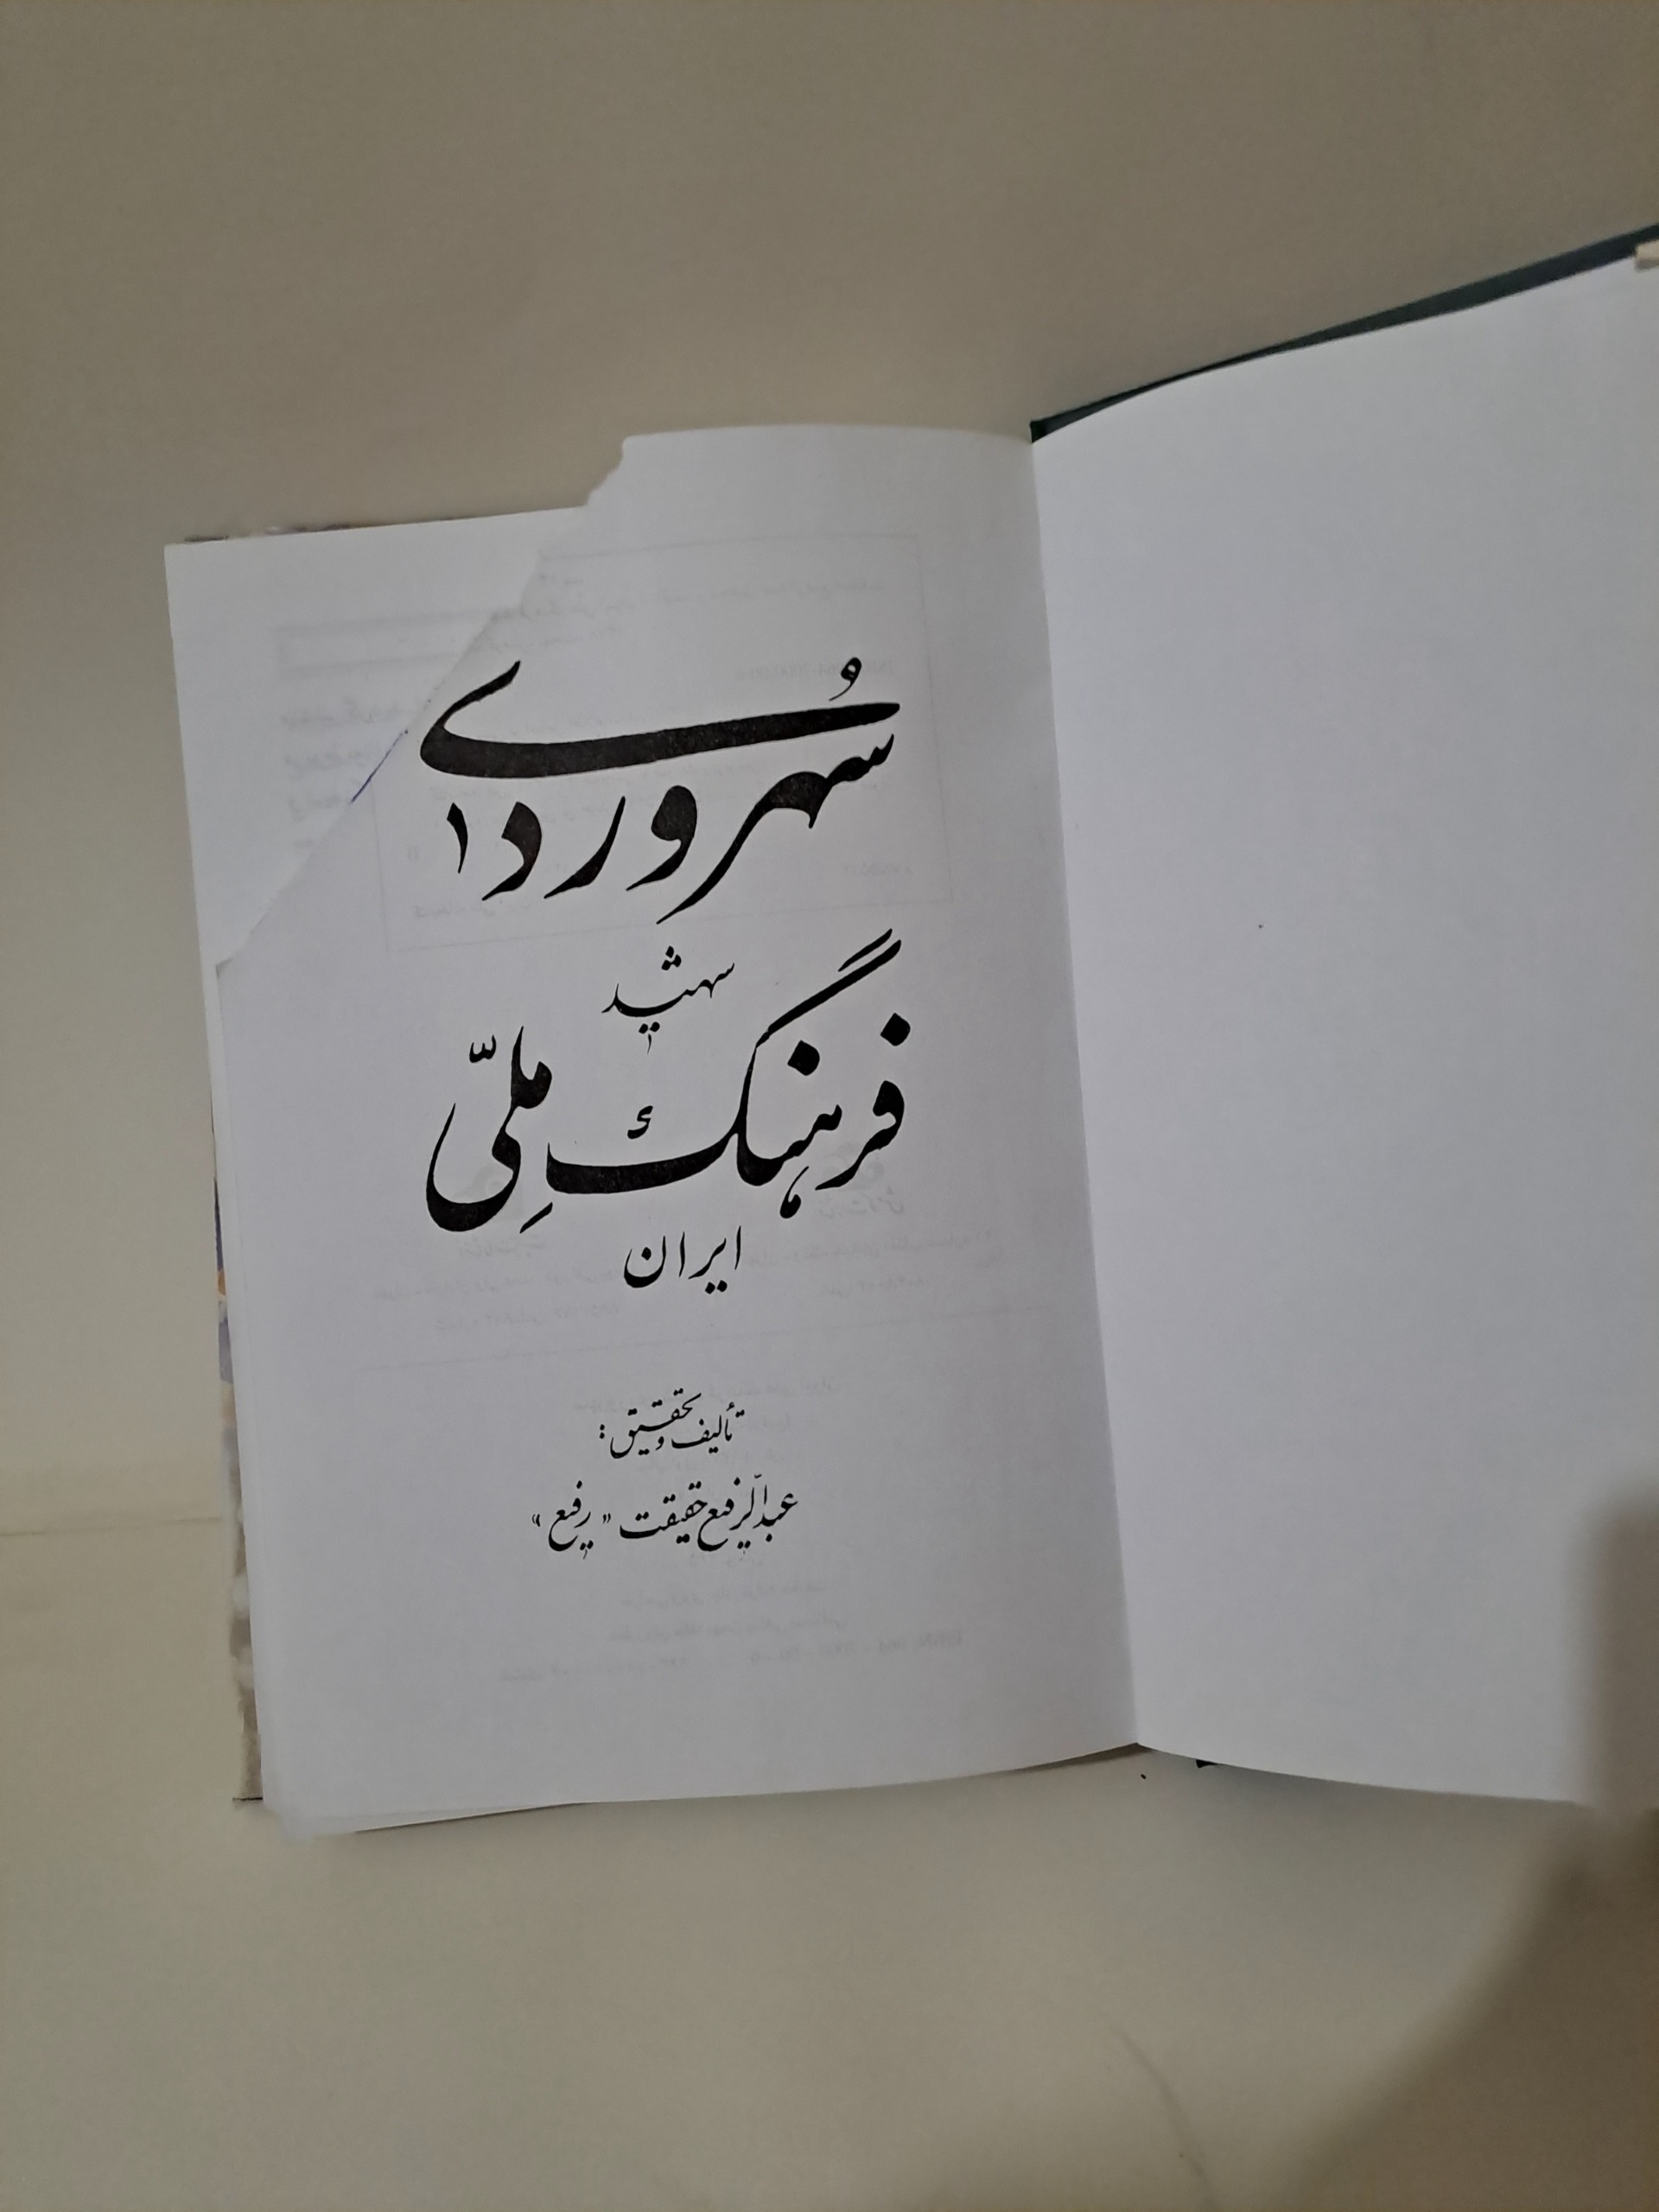 سُهروردی
شهید
فرهنگ مِلّی
ایران
تألیف و تحقیق:
عبدالرّفیع حقیقت «رفیع»